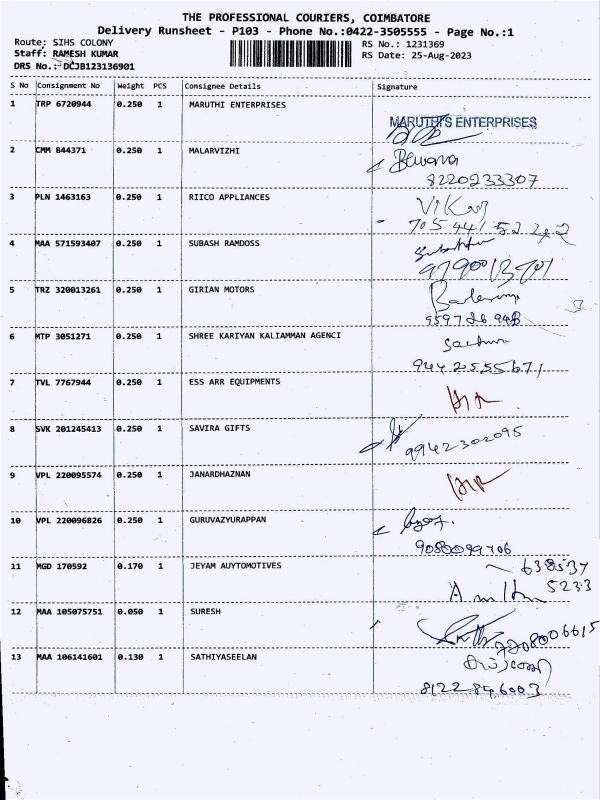 THE PROFESSIONAL COURIERS, COIMBATORE
Delivery Runsheet - P103 - Phone No.:0422-3505555 - Page No.:1
Route: SIHS COLONY RS No.: 1231369
Staff: RAMESH KUMAR RS Date: 25-Aug-2023
DRS No.: DCJB123136901
S No Consignment No Weight PCS Consignee Details Signature
1 TRP 6720944 0.250 1 MARUTHI ENTERPRISES
MARUTHI'S ENTERPRISES
2 CMM 844371 0.250 1 MALARVIZHI
8220233307
3 PLN 1463163 0.250 1 RIICO APPLIANCES
4 MAA 571593407 0.250 1 SUBASH RAMDOSS
5 TRZ 320013261 0.250 1 GIRIAN MOTORS
6 MTP 3051271 0.250 1 SHREE KARIYAN KALIAMMAN AGENCI
9442555671
7 TVL 7767944 0.250 1 ESS ARR EQUIPMENTS
8 SVK 201245413 0.250 1 SAVIRA GIFTS
9942302095
9 VPL 220095574 0.250 1 JANARDHAZNAN
10 VPL 220096826 0.250 1 GURUVAZYURAPPAN
9080099706
11 MGD 170592 0.170 1 JEYAM AUYTOMOTIVES
638537
5233
12 MAA 105075751 0.050 1 SURESH
7708006615
13 MAA 106141601 0.130 1 SATHIYASEELAN
8122846003